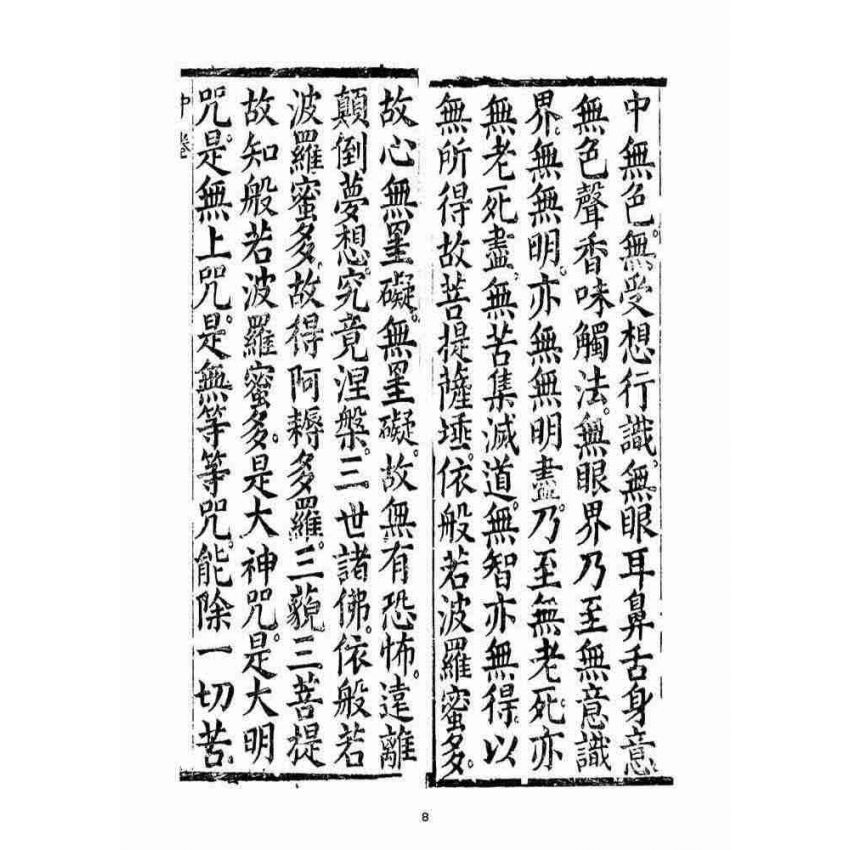 中無色。無受想行識。無眼耳鼻舌身意。
無色聲香味觸法。無眼界乃至無意識
界。無無明。亦無無明盡。乃至無老死。亦
無老死盡。無苦集滅道。無智亦無得。以
無所得故。菩提薩埵。依般若波羅蜜多。
故心無罣礙。無罣礙。故無有恐怖。遠離
顛倒夢想。究竟涅槃。三世諸佛。依般若
波羅蜜多。故得阿耨多羅。三藐三菩提
故知般若波羅蜜多。是大神咒。是大明
咒。是無上咒。是無等等咒。能除一切苦。
中卷
8